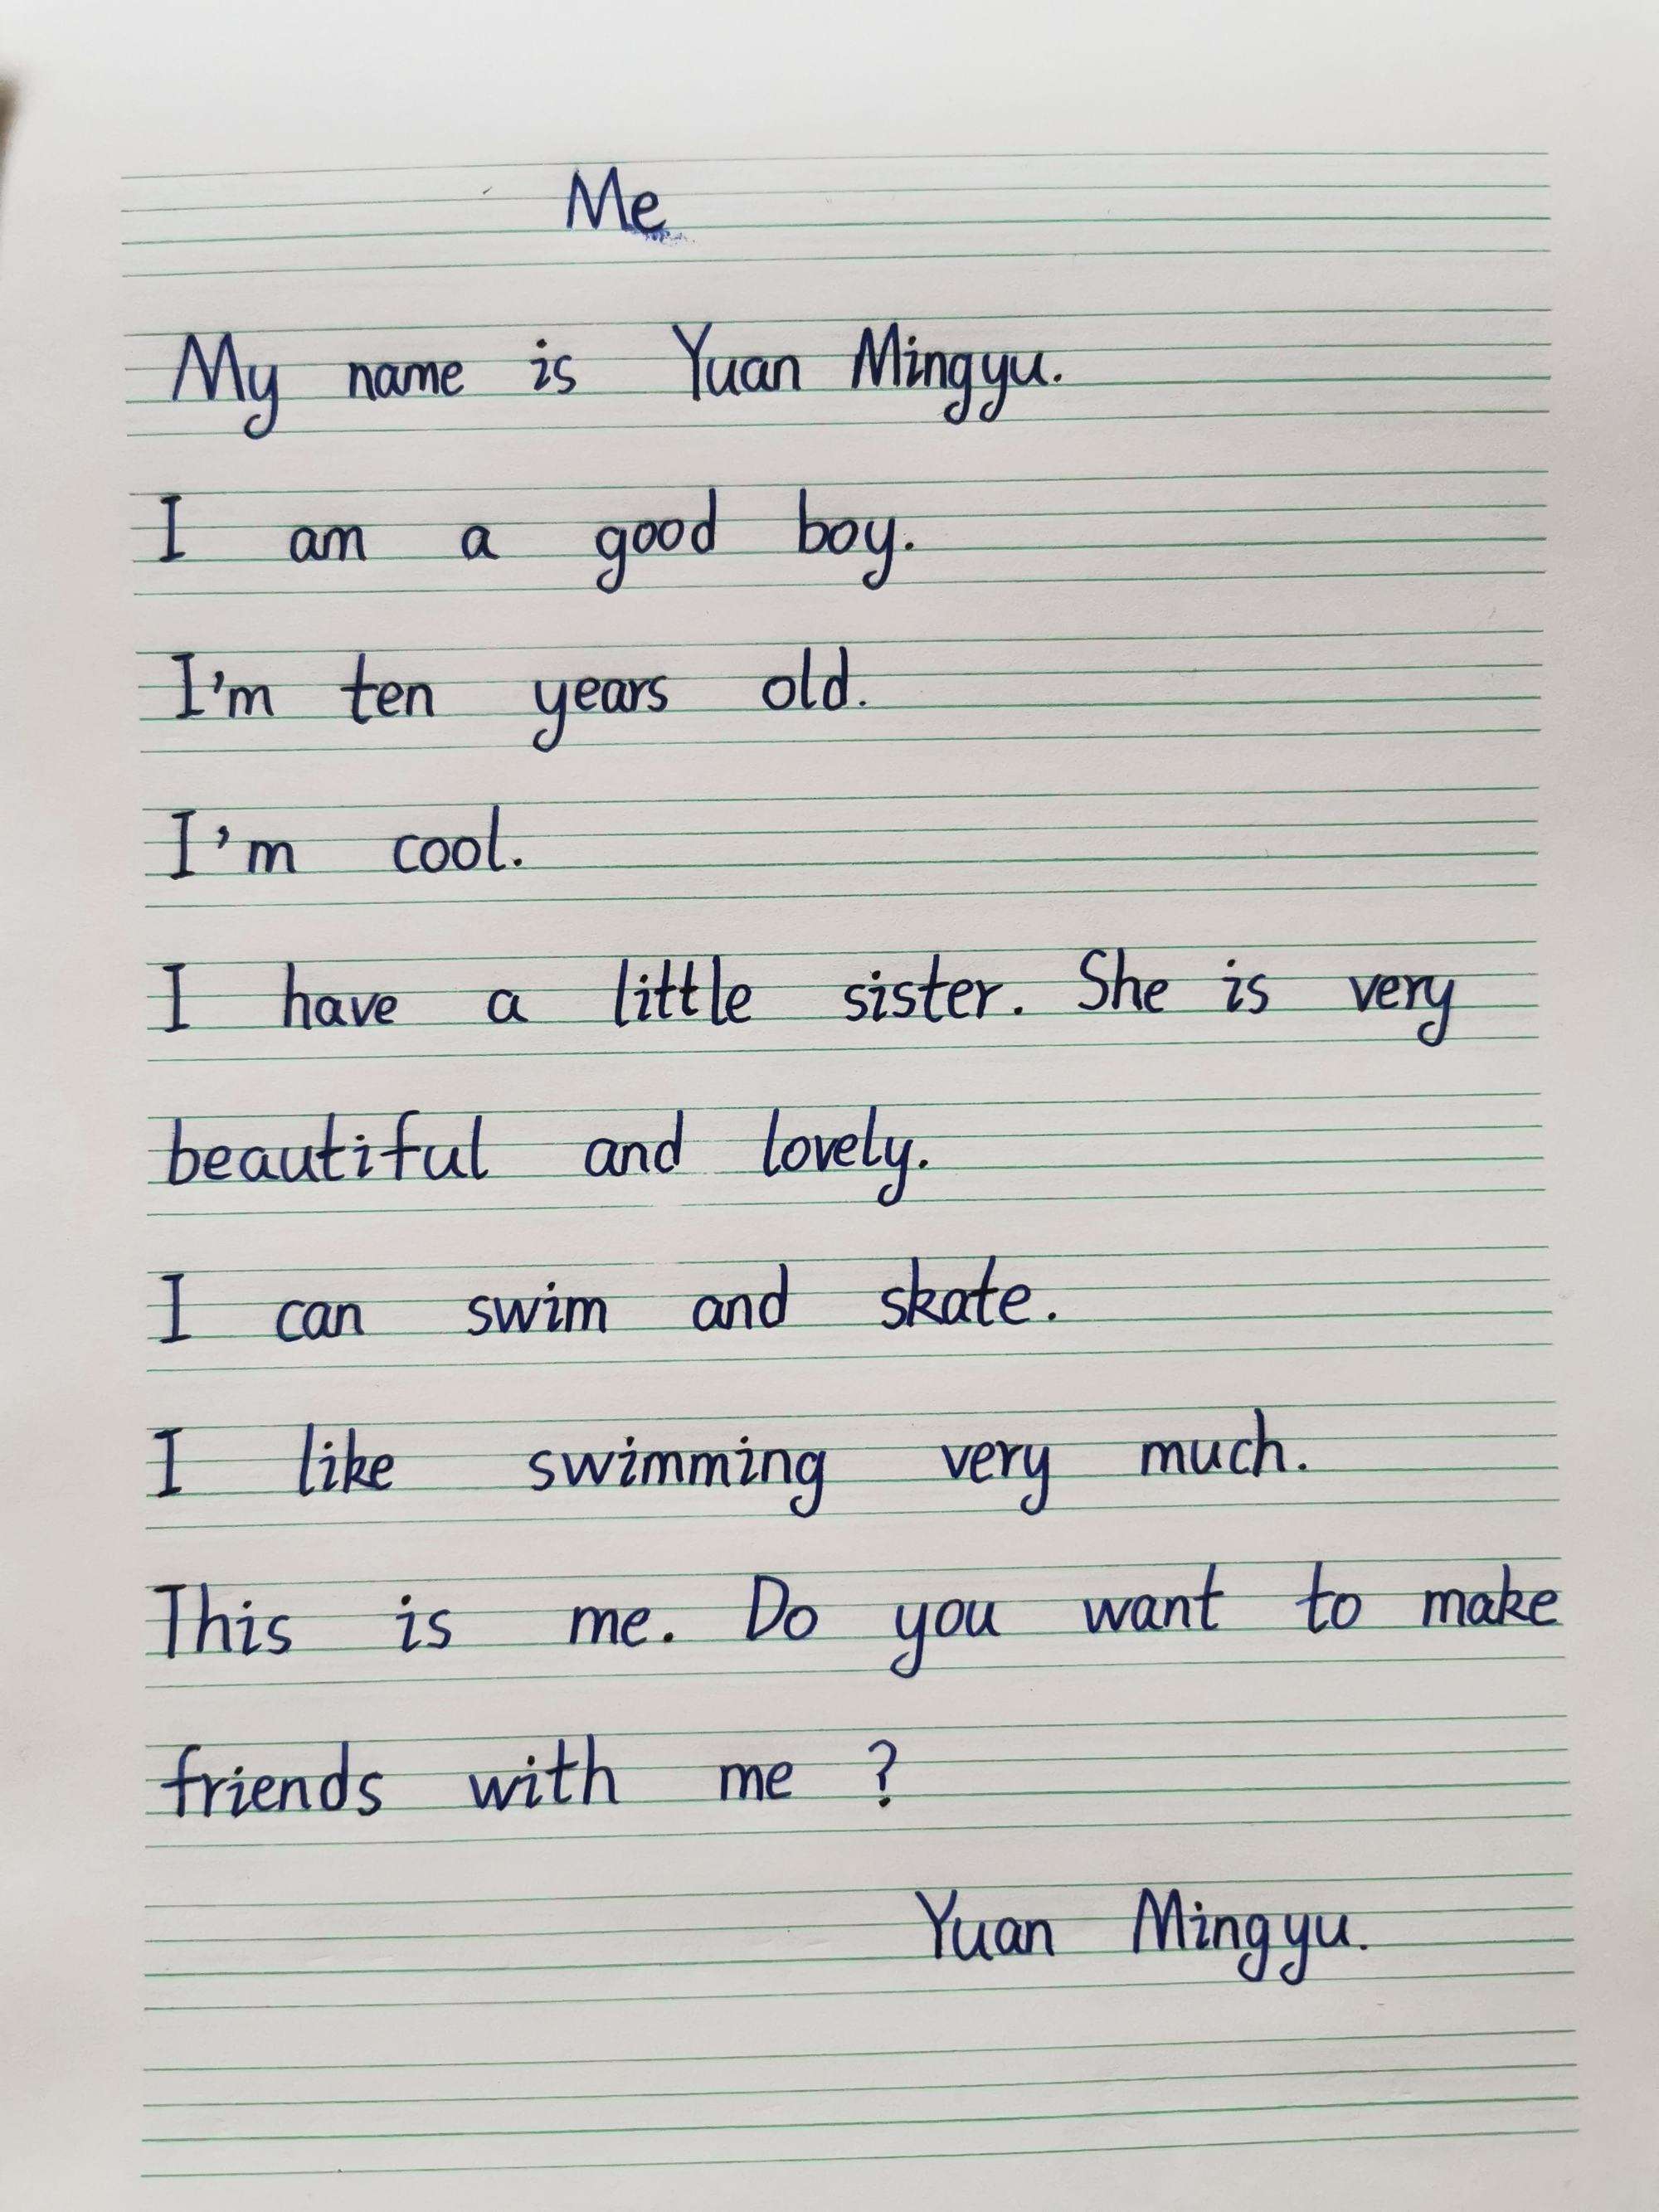 Me
My name is Yuan Mingyu.
I am a good boy.
I'm ten years old.
I'm cool.
I have a little sister. She is very
beautiful and lovely.
I can swim and skate.
I like swimming very much.
This is me. Do you want to make
friends with me ?
Yuan Mingyu.